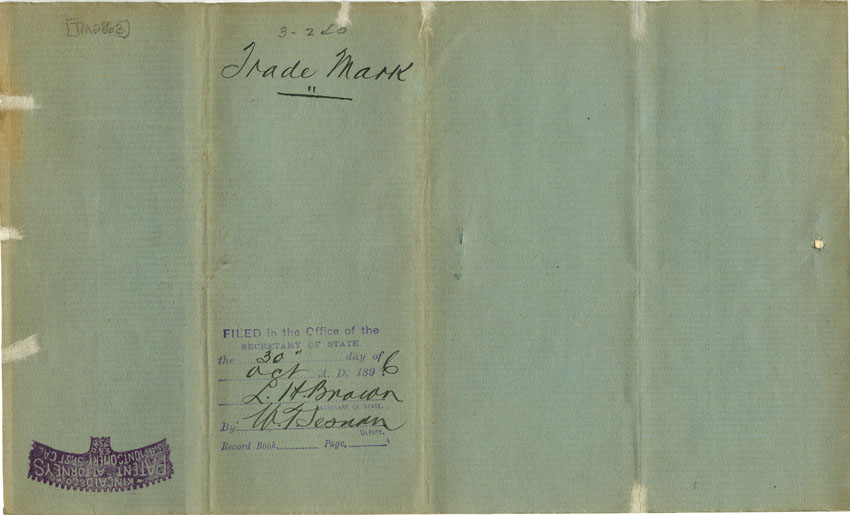 [TM2863]
3-260
Trade Mark
"
FILED in the Office of the
SECRETARY OF STATE.
the 30" day of
Oct A. D. 1896
L. H. Brown
SECRETARY OF STATE.
By W. T. Sesnon
DEPUTY.
Record Book, Page,
KINCAID & CO
PATENT ATTORNEYS
MONTGOMERY ST. CAL.